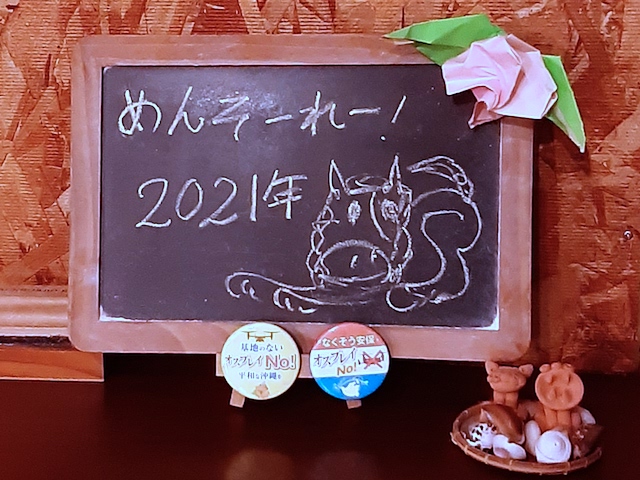 めんそーれー!
2021年
基地のない
オスプレイNo!
平和な沖縄を
なくそう安保
オスプレイ
No!